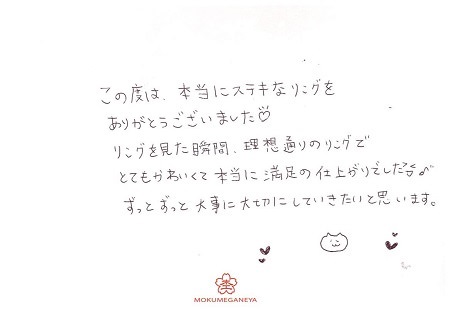 この度は、本当にステキなリングを
ありがとうございました♡
リングを見た瞬間、理想通りのリングで
とてもかわいくて本当に満足の仕上がりでした
ずっとずっと大事に大切にしていきたいと思います。
MOKUMEGANEYA